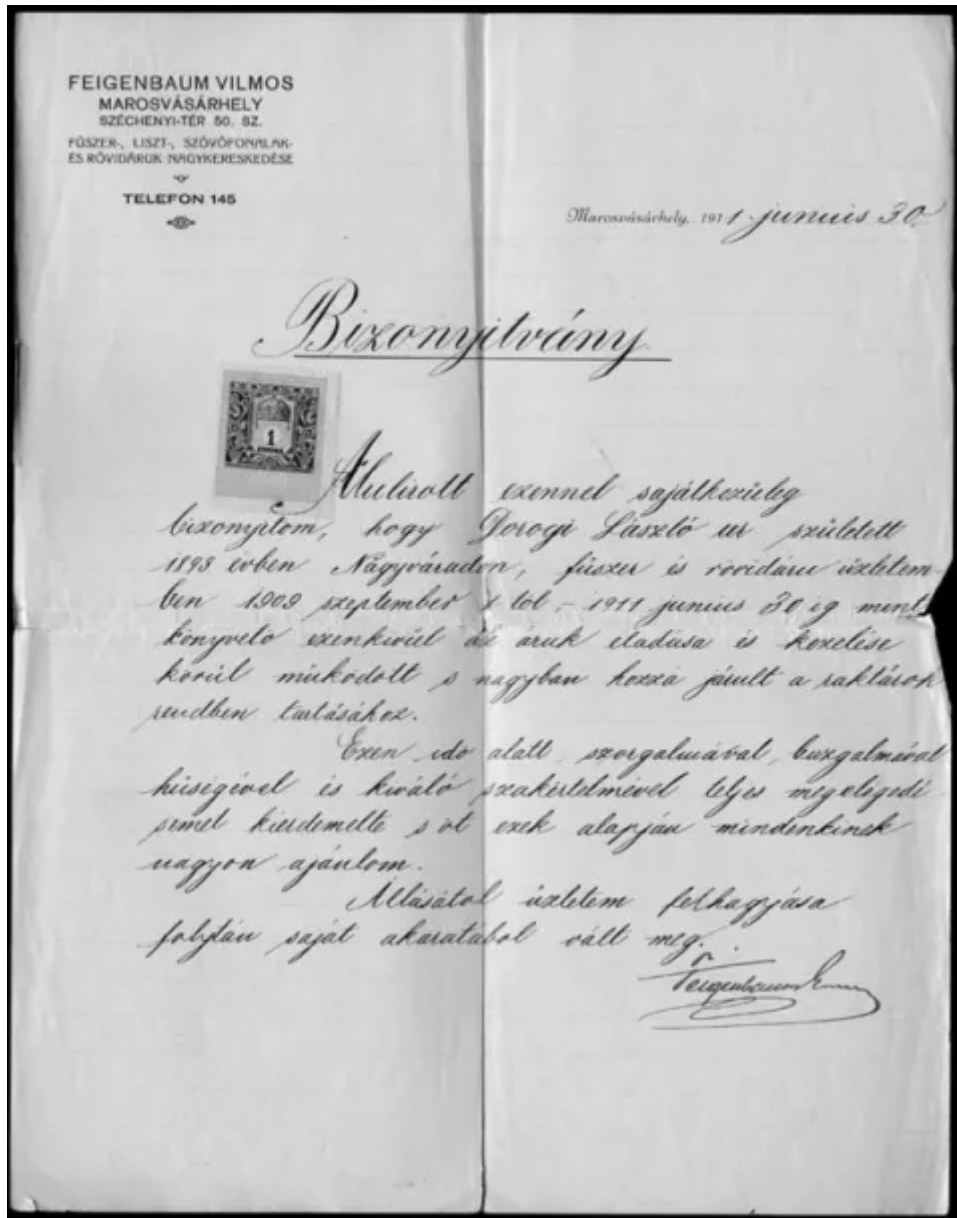 FEIGENBAUM VILMOS
MAROSVÁSÁRHELY
SZÉCHENYI-TÉR 50. SZ.
FŰSZER-, LISZT-, SZÖVŐFONALAK-
ÉS RÖVIDÁRUK NAGYKERESKEDÉSE
TELEFON 145
Marosvásárhely, 1911 junius 30.
Bizonyitvány
1
Alulirott ezennel sajátkezüleg
bizonyitom, hogy Dorogi László ur született
1893 évben Nagyváradon, füszer és rövidáru üzletem-
ben 1909 szeptember 1 tol - 1911 junius 30 ig mint
könyvelo ezenkivül az áruk eladása és kezelése
körül müködött s nagyban hozzá járult a raktárok
rendben tartásához.
Ezen ido alatt szorgalmával, buzgalmával
hüségével és kiváló szakértelmével teljes megelégedé
semet kiérdemelte s ot ezek alapján mindenkinek
nagyon ajánlom.
Állásától üzletem felhagyása
folytán saját akaratából vált meg.
Feigenbaum